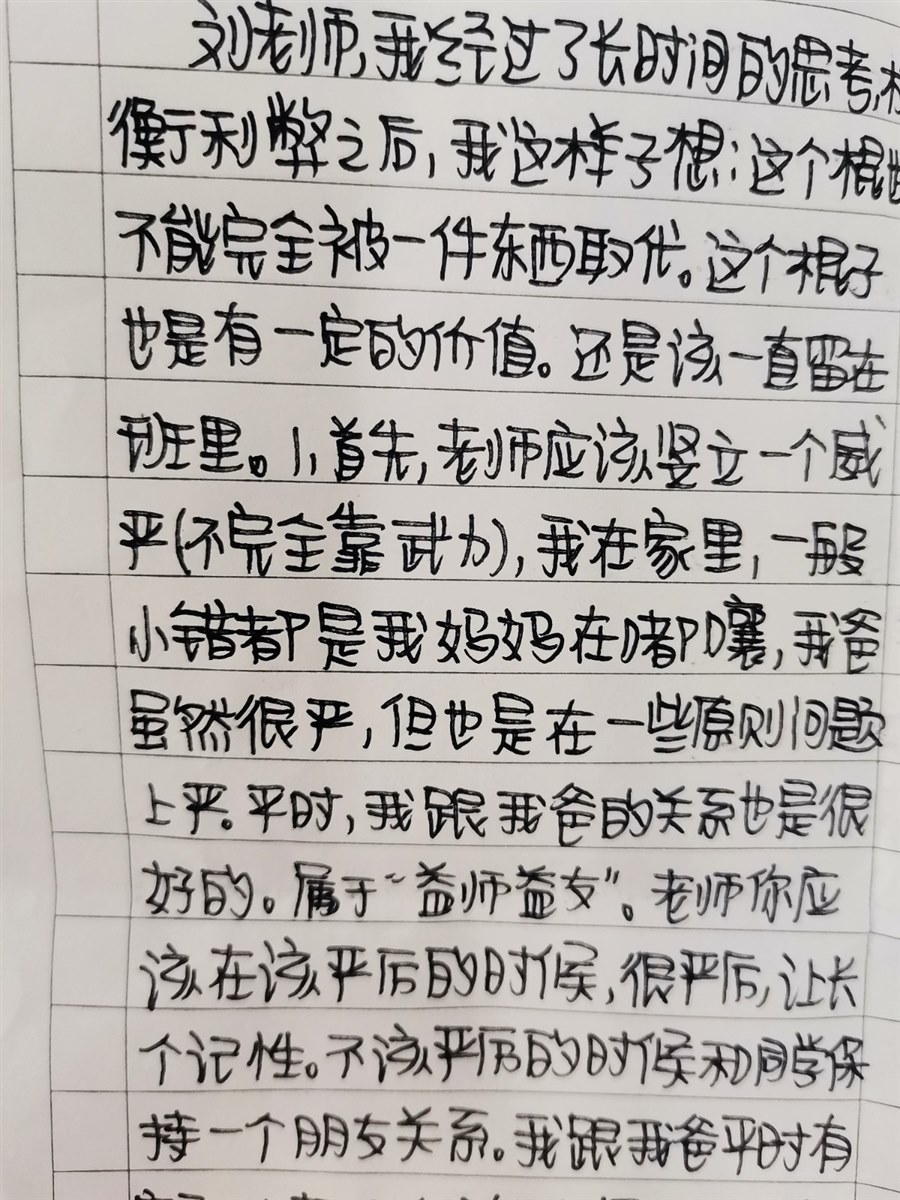 刘老师,我经过了长时间的思考,权
衡利弊之后,我这样子想:这个棍
不能完全被一件东西取代。这个棍子
也是有一定的价值。还是该一直留在
班里。1,首先,老师应该竖立一个威
严(不完全靠武力),我在家里,一般
小错都是我妈妈在嘟囔,我爸
虽然很严,但也是在一些原则问题
上严。平时,我跟我爸的关系也是很
好的。属于“益师益友”。老师你应
该在该严厉的时候,很严厉,让长
个记性。不该严厉的时候和同学保
持一个朋友关系。我跟我爸平时有